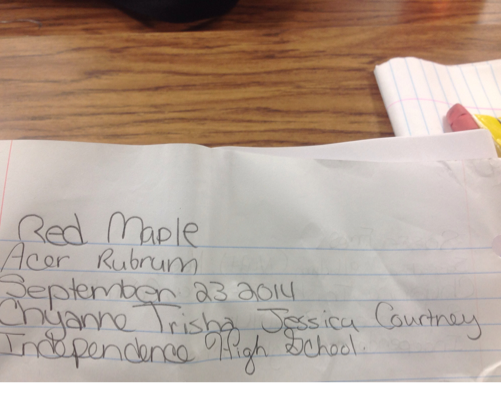 Red Maple
Acer Rubrum
September 23 2014
Chyanne Trisha Jessica Courtney
Independence High School.